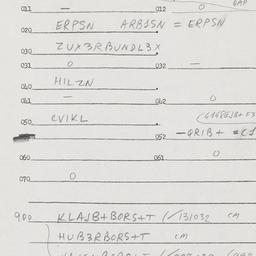 011 — 012 0 GAP
020 ERPSN ARB1SN = ERPSN
030 ZUX3RBUNDL3X
031 0 032 —
040 HILZN
041 — 042 0
050 CVIKL
052 —GRIB+
060 061 0
070 0
900 KLA1B+BORS+T (/131032 CM
HUB3RBORS+T CM